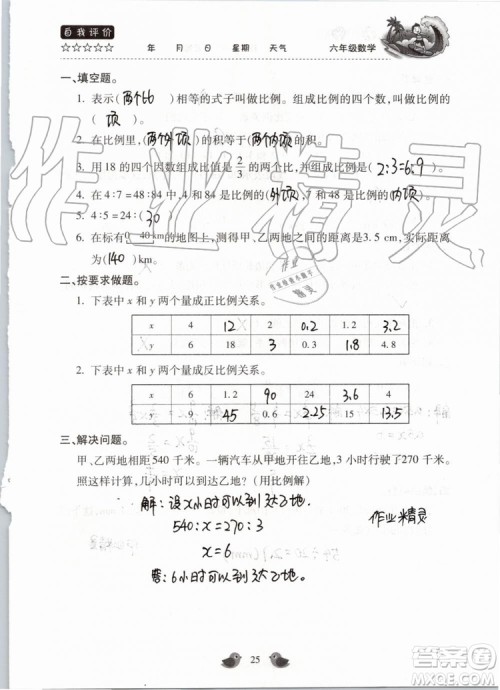 自我评价
☆☆☆☆☆ 年 月 日 星期 天气 六年级数学
一、填空题。
1. 表示（两个比）相等的式子叫做比例。组成比例的四个数，叫做比例的（项）。
2. 在比例里，（两个外项）的积等于（两个内项）的积。
3. 用 18 的四个因数组成比值是 2/3 的比，并组成比例是（2:3=6:9）。
4. 在 4∶7=48∶84 中，4 和 84 是比例的（外项），7 和 48 是比例的（内项）。
5. 4∶5=24∶（30）
6. 在标有 0 40 km 的地图上，测得甲、乙两地的距离是 3.5 cm，实际距离
为（140）km。
二、按要求做题。
1. 下表中 x 和 y 两个量成正比例关系。
x 4 12 2 0.2 1.2 3.2
y 6 18 3 0.3 1.8 4.8
2. 下表中 x 和 y 两个量成反比例关系。
x 6 1.2 90 24 3.6 4
y 9 45 0.6 2.25 15 13.5
三、解决问题。
甲、乙两地相距 540 千米。一辆汽车从甲地开往乙地，3 小时行驶了 270 千米。
照这样计算，几小时可以到达乙地？（用比例解）
解：设x小时可以到达乙地。
540:x=270:3
x=6
答：6小时可以到达乙地。
作业精灵
25
作业精灵